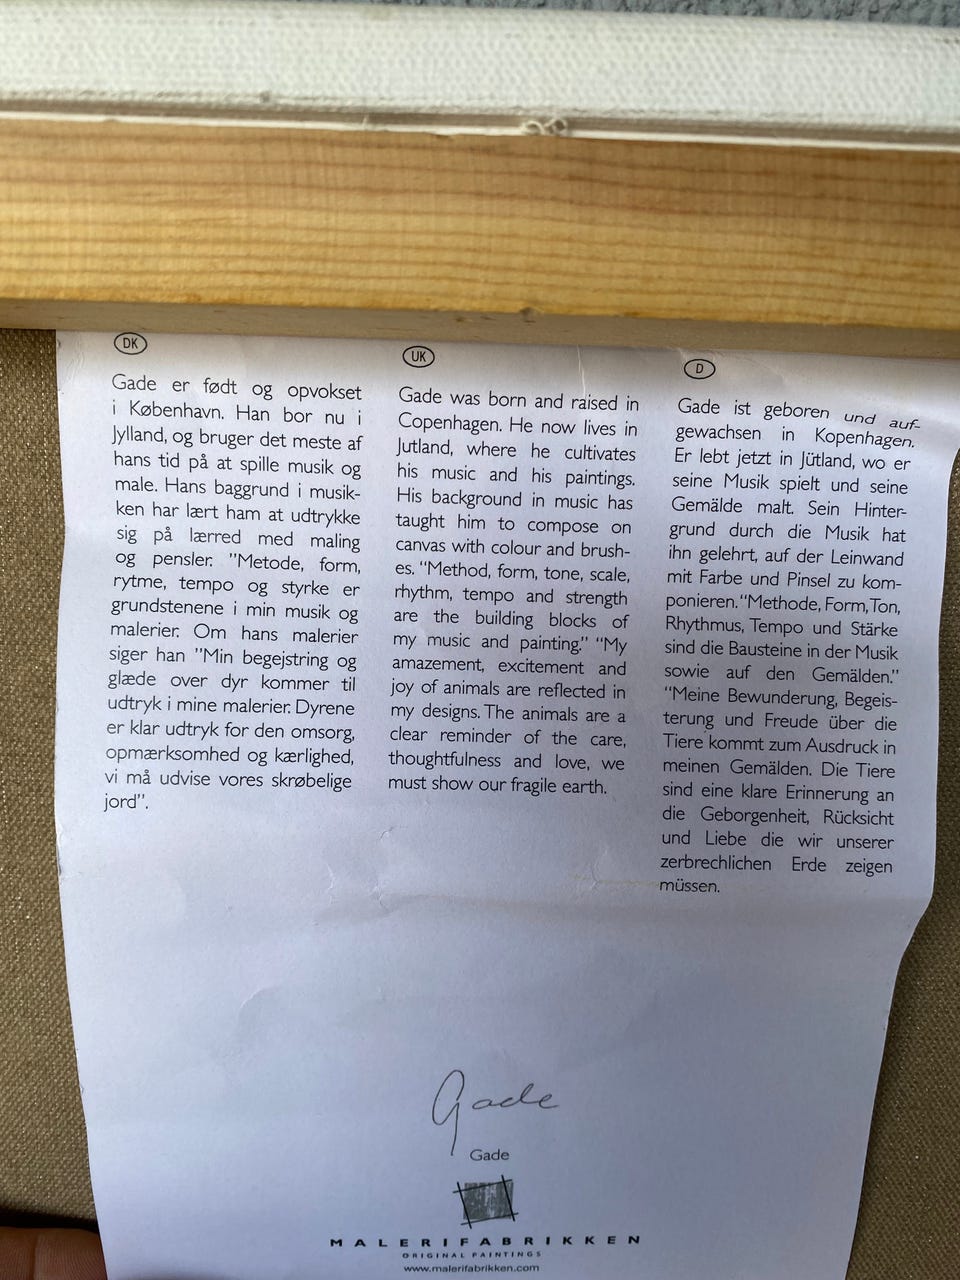 DK
Gade er født og opvokset
i København. Han bor nu i
Jylland, og bruger det meste af
hans tid på at spille musik og
male. Hans baggrund i musik-
ken har lært ham at udtrykke
sig på lærred med maling
og pensler. "Metode, form,
rytme, tempo og styrke er
grundstenene i min musik og
malerier. Om hans malerier
siger han "Min begejstring og
glæde over dyr kommer til
udtryk i mine malerier. Dyrene
er klar udtryk for den omsorg,
opmærksomhed og kærlighed,
vi må udvise vores skrøbelige
jord".
UK
Gade was born and raised in
Copenhagen. He now lives in
Jutland, where he cultivates
his music and his paintings.
His background in music has
taught him to compose on
canvas with colour and brush-
es. "Method, form, tone, scale,
rhythm, tempo and strength
are the building blocks of
my music and painting." "My
amazement, excitement and
joy of animals are reflected in
my designs. The animals are a
clear reminder of the care,
thoughtfulness and love, we
must show our fragile earth.
D
Gade ist geboren und auf-
gewachsen in Kopenhagen.
Er lebt jetzt in Jütland, wo er
seine Musik spielt und seine
Gemälde malt. Sein Hinter-
grund durch die Musik hat
ihn gelehrt, auf der Leinwand
mit Farbe und Pinsel zu kom-
ponieren. "Methode, Form, Ton,
Rhythmus, Tempo und Stärke
sind die Bausteine in der Musik
sowie auf den Gemälden."
"Meine Bewunderung, Begeis-
terung und Freude über die
Tiere kommt zum Ausdruck in
meinen Gemälden. Die Tiere
sind eine klare Erinnerung an
die Geborgenheit, Rücksicht
und Liebe die wir unserer
zerbrechlichen Erde zeigen
müssen.
Gade
Gade
MALERIFABRIKKEN
ORIGINAL PAINTINGS
www.malerifabrikken.com